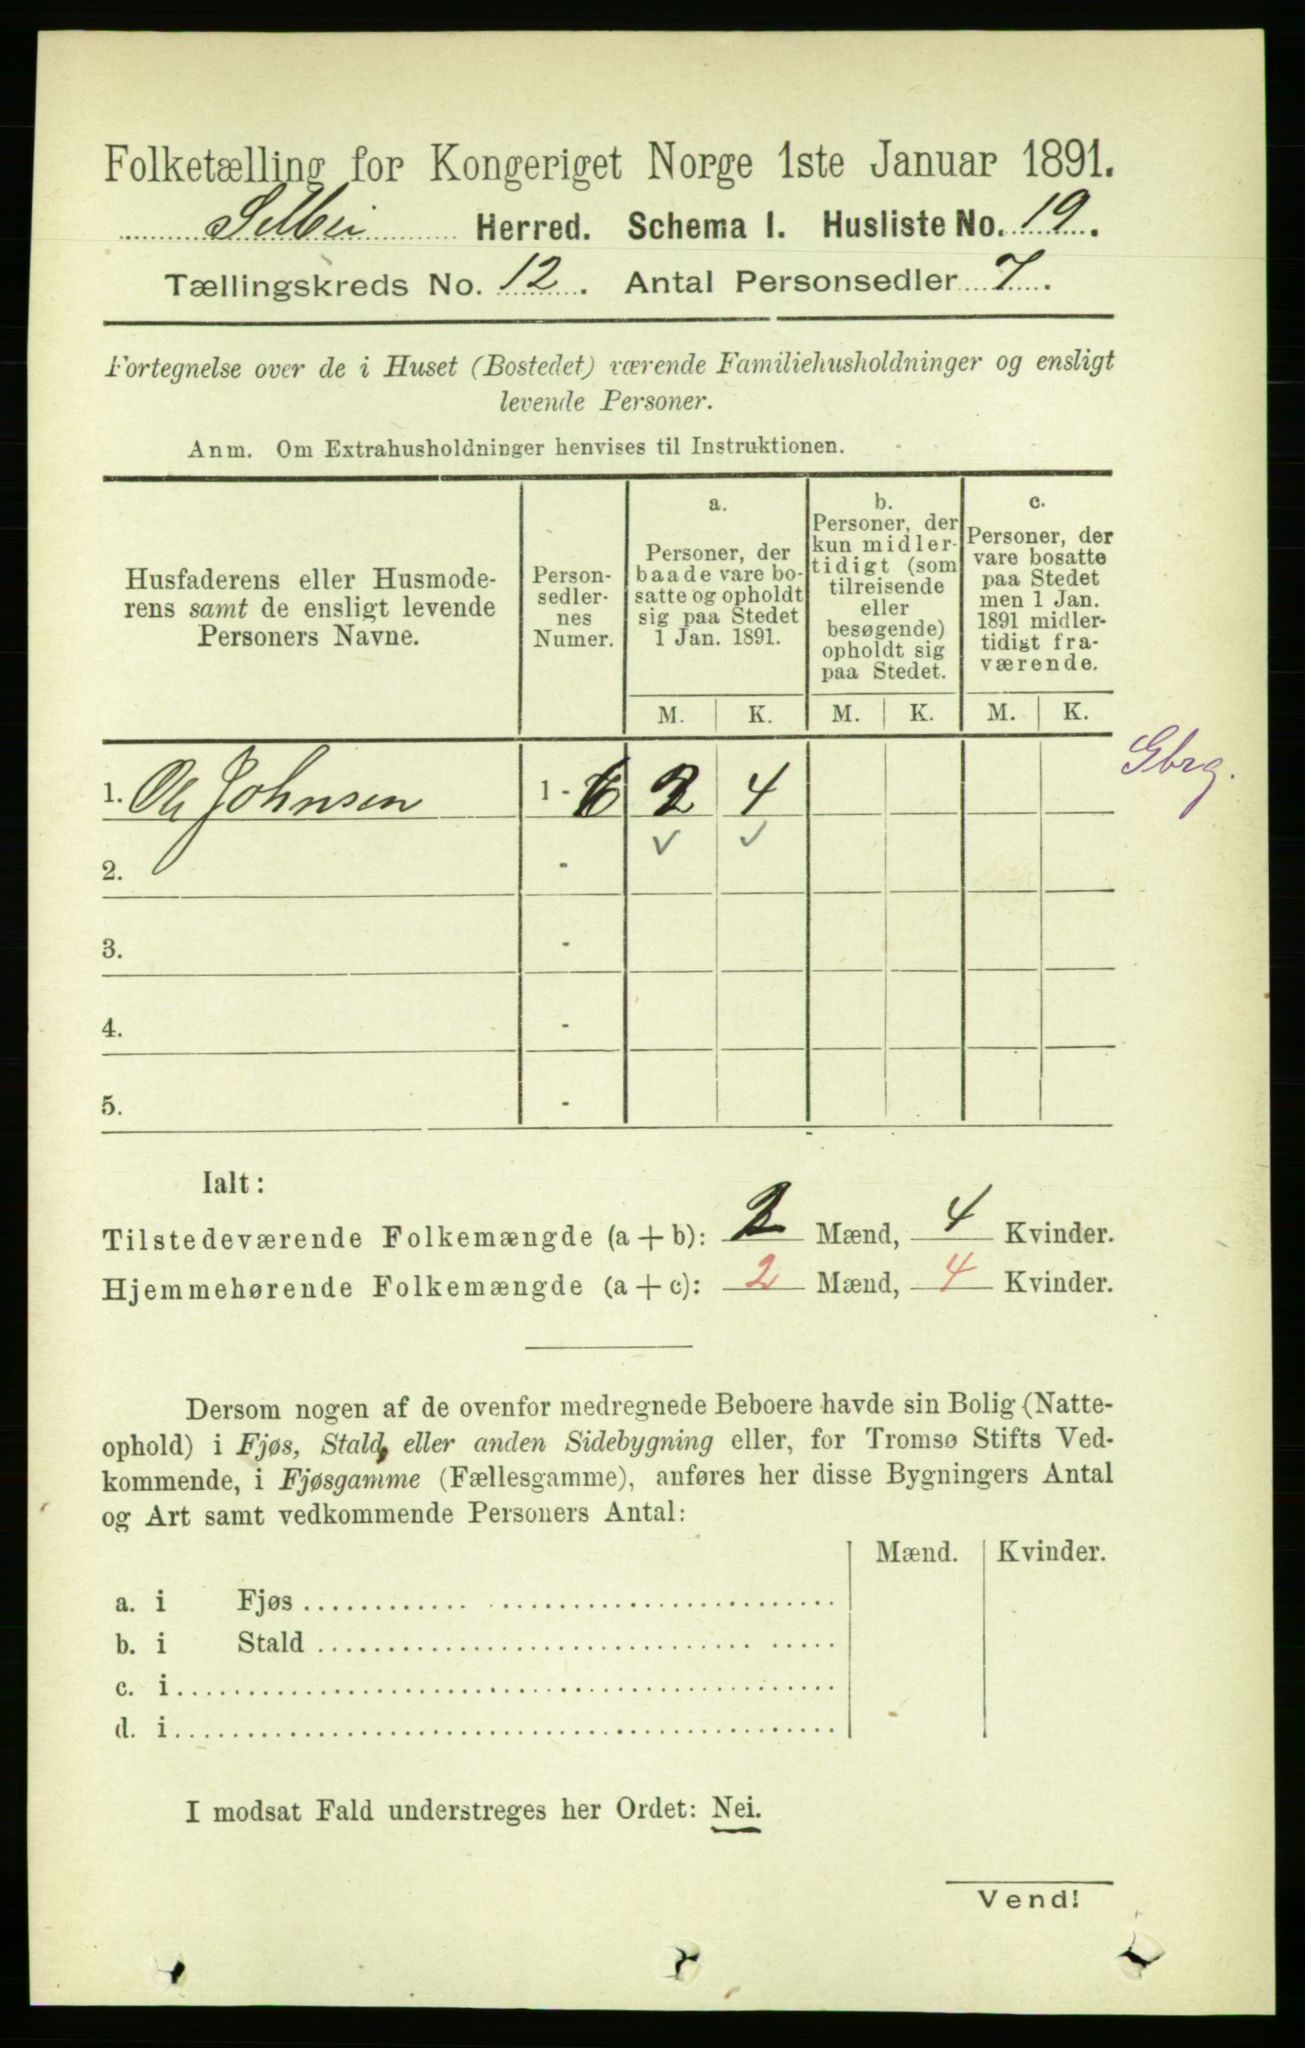 Folketælling for Kongeriget Norge 1ste Januar 1891.
Selbu Herred. Schema I. Husliste No. 19.
Tællingskreds No. 12. Antal Personsedler 7.
Fortegnelse over de i Huset (Bostedet) værende Familiehusholdninger og ensligt
levende Personer.
Anm. Om Extrahusholdninger henvises til Instruktionen.
Husfaderens eller Husmode-
rens samt de ensligt levende
Personers Navne.
Person-
sedler-
nes
Numer.
a.
Personer, der
baade vare bo-
satte og opholdt
sig paa Stedet
1 Jan. 1891.
b.
Personer, der
kun midler-
tidigt (som
tilreisende
eller
besøgende)
opholdt sig
paa Stedet.
c.
Personer, der
vare bosatte
paa Stedet
men 1 Jan.
1891 midler-
tidigt fra-
værende.
M. K. M. K. M. K.
1. Ole Johnsen 1 - 6 2 4
Gbrg.
2. -
3. -
4. -
5. -
Ialt:
Tilstedeværende Folkemængde (a + b): 2 Mænd, 4 Kvinder.
Hjemmehørende Folkemængde (a + c): 2 Mænd, 4 Kvinder.
Dersom nogen af de ovenfor medregnede Beboere havde sin Bolig (Natte-
ophold) i Fjøs, Stald, eller anden Sidebygning eller, for Tromsø Stifts Ved-
kommende, i Fjøsgamme (Fællesgamme), anføres her disse Bygningers Antal
og Art samt vedkommende Personers Antal:
Mænd. Kvinder.
a. i Fjøs
b. i Stald
c. i
d. i
I modsat Fald understreges her Ordet: Nei.
Vend!